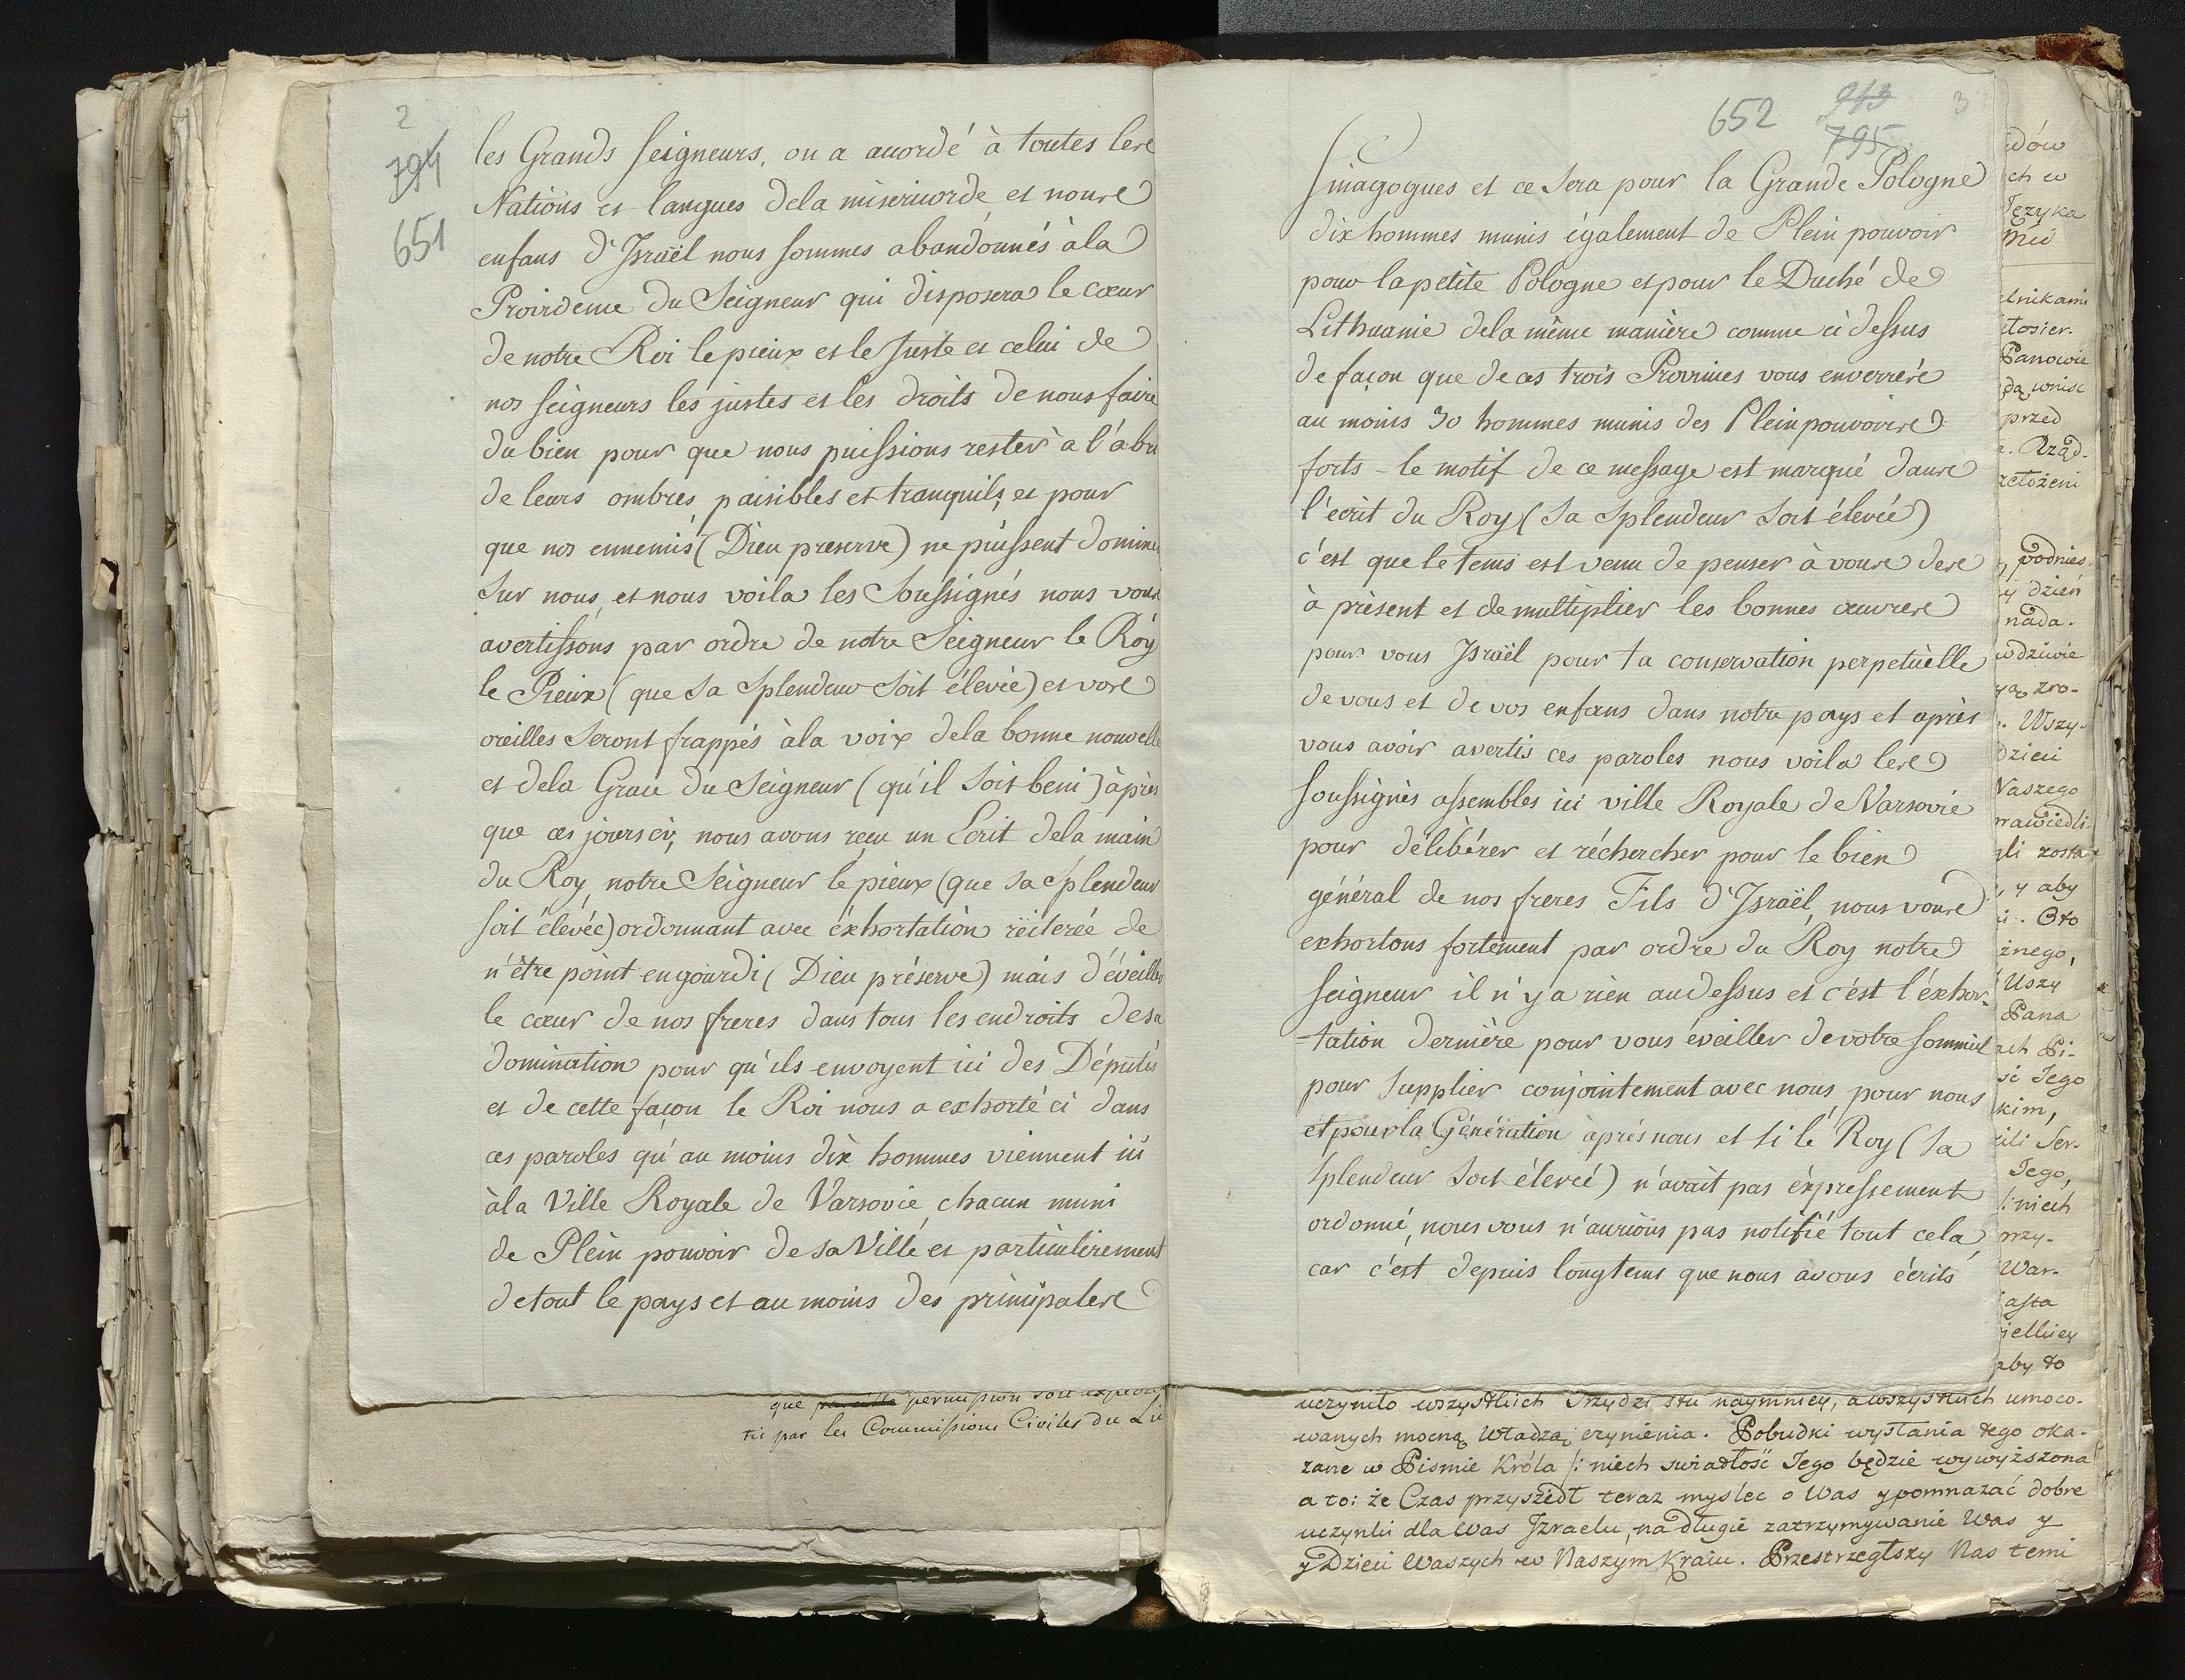 2
794
651
les Grands Seigneurs, on a acordé à toutes les
Nations et langues dela misericorde et nous
enfans d'Israël nous sommes abandonnés à la
Providence du Seigneur qui disposera le cœur
de notre Roi le pieux et le Juste et celui de
nos seigneurs les justes et les droits de nous faire
du bien pour que nous puissions rester à l'abri
de leurs ombres paisibles et tranquils, et pour
que nos ennemis (Dieu preserve) ne puissent domine
sur nous, et nous voila les Soussignés nous vous
avertissons par ordre de notre Seigneur le Roy
le Pieux (que sa Splendeur soit élevée) et vos
oreilles seront frappés à la voix dela bonne nouvelle
et dela Grace du Seigneur (qu'il soit beni) àprès
que ces jours cy, nous avons reçu un Ecrit dela main
du Roy notre Seigneur le pieux (que sa splendeur
soit élevée) ordonnant avec éxhortation réiterée de
n'être point engourdi (Dieu préserve) mais d'éveiller
le cœur de nos freres dans tous les endroits de sa
domination pour qu'ils envoyent ici des Députés
et de cette façon le Roi nous a exhorté ci dans
ces paroles qu'au moins dix hommes viennent ici
à la Ville Royale de Varsovie, chacun muni
de Plein pouvoir de sa Ville et particulierement
de tout le pays et au moins des principales
que permission soit
tii par les Commissions Civiles du Li
652 913 3
795
Sinagogues et ce sera pour la Grande Pologne
dix hommes munis également de Plein pouvoir
pour la petite Pologne et pour le Duché de
Lithuanie dela même manière comme ci dessus
de façon que de ces trois Provinces vous enverrés
au moins 30 hommes munis des Pleinpouvoirs
forts - le motif de ce message est marqué dans
l'écrit du Roy (sa Splendeur soit élevée)
c'est que le tems est venu de penser à vous des
à présent et de multiplier les bonnes œuvres
pour vous Israël pour ta conservation perpetuelle
de vous et de vos enfans dans notre pays et après
vous avoir avertis ces paroles nous voila les
soussignés assemblés ici ville Royale de Varsovie
pour délibérer et réchercher pour le bien
général de nos freres Fils d'Israël, nous vous
exhortons fortement par ordre du Roy notre
seigneur il n'y a rien au dessus et c'est l'éxhor-
-tation dernière pour vous éveiller de votre sommeil
pour supplier conjointement avec nous pour nous
et pour la Génération àprés nous et si le Roy (sa
splendeur soit élevée) n'avait pas éxpressement
ordonné, nous vous n'aurions pas notifié tout cela,
car c'est depuis longtems que nous avons écrits
dów
ch w
Języka
elnikami
Panowie
przed
. Rząd-
, podnies
y dzień
nada-
wdziwie
. Wszy-
Dzieci
Naszego
rawiedli-
gli zosta
, y aby
. Oto
żnego,
Uszy
Pana
ach Pi-
si Jego
kim,
Jego,
/: niech
przy-
War-
aby to
uczyniło wszystkich Trzydzi stu naymniey, a wszystkich umoco-
wanych mocną władzą czynienia. Pobudki wysłania tego oka-
zane w Pismie Króla /: niech swiadłość Jego będzie wywyższona
a to: że Czas przyszedł teraz myslec o Was y pomnażać dobre
uczynki dla Was Izraelu, na długie zatrzymywanie Was y
y Dzieci Waszych w Naszym Kraiu. Przestrzegłszy Was temi